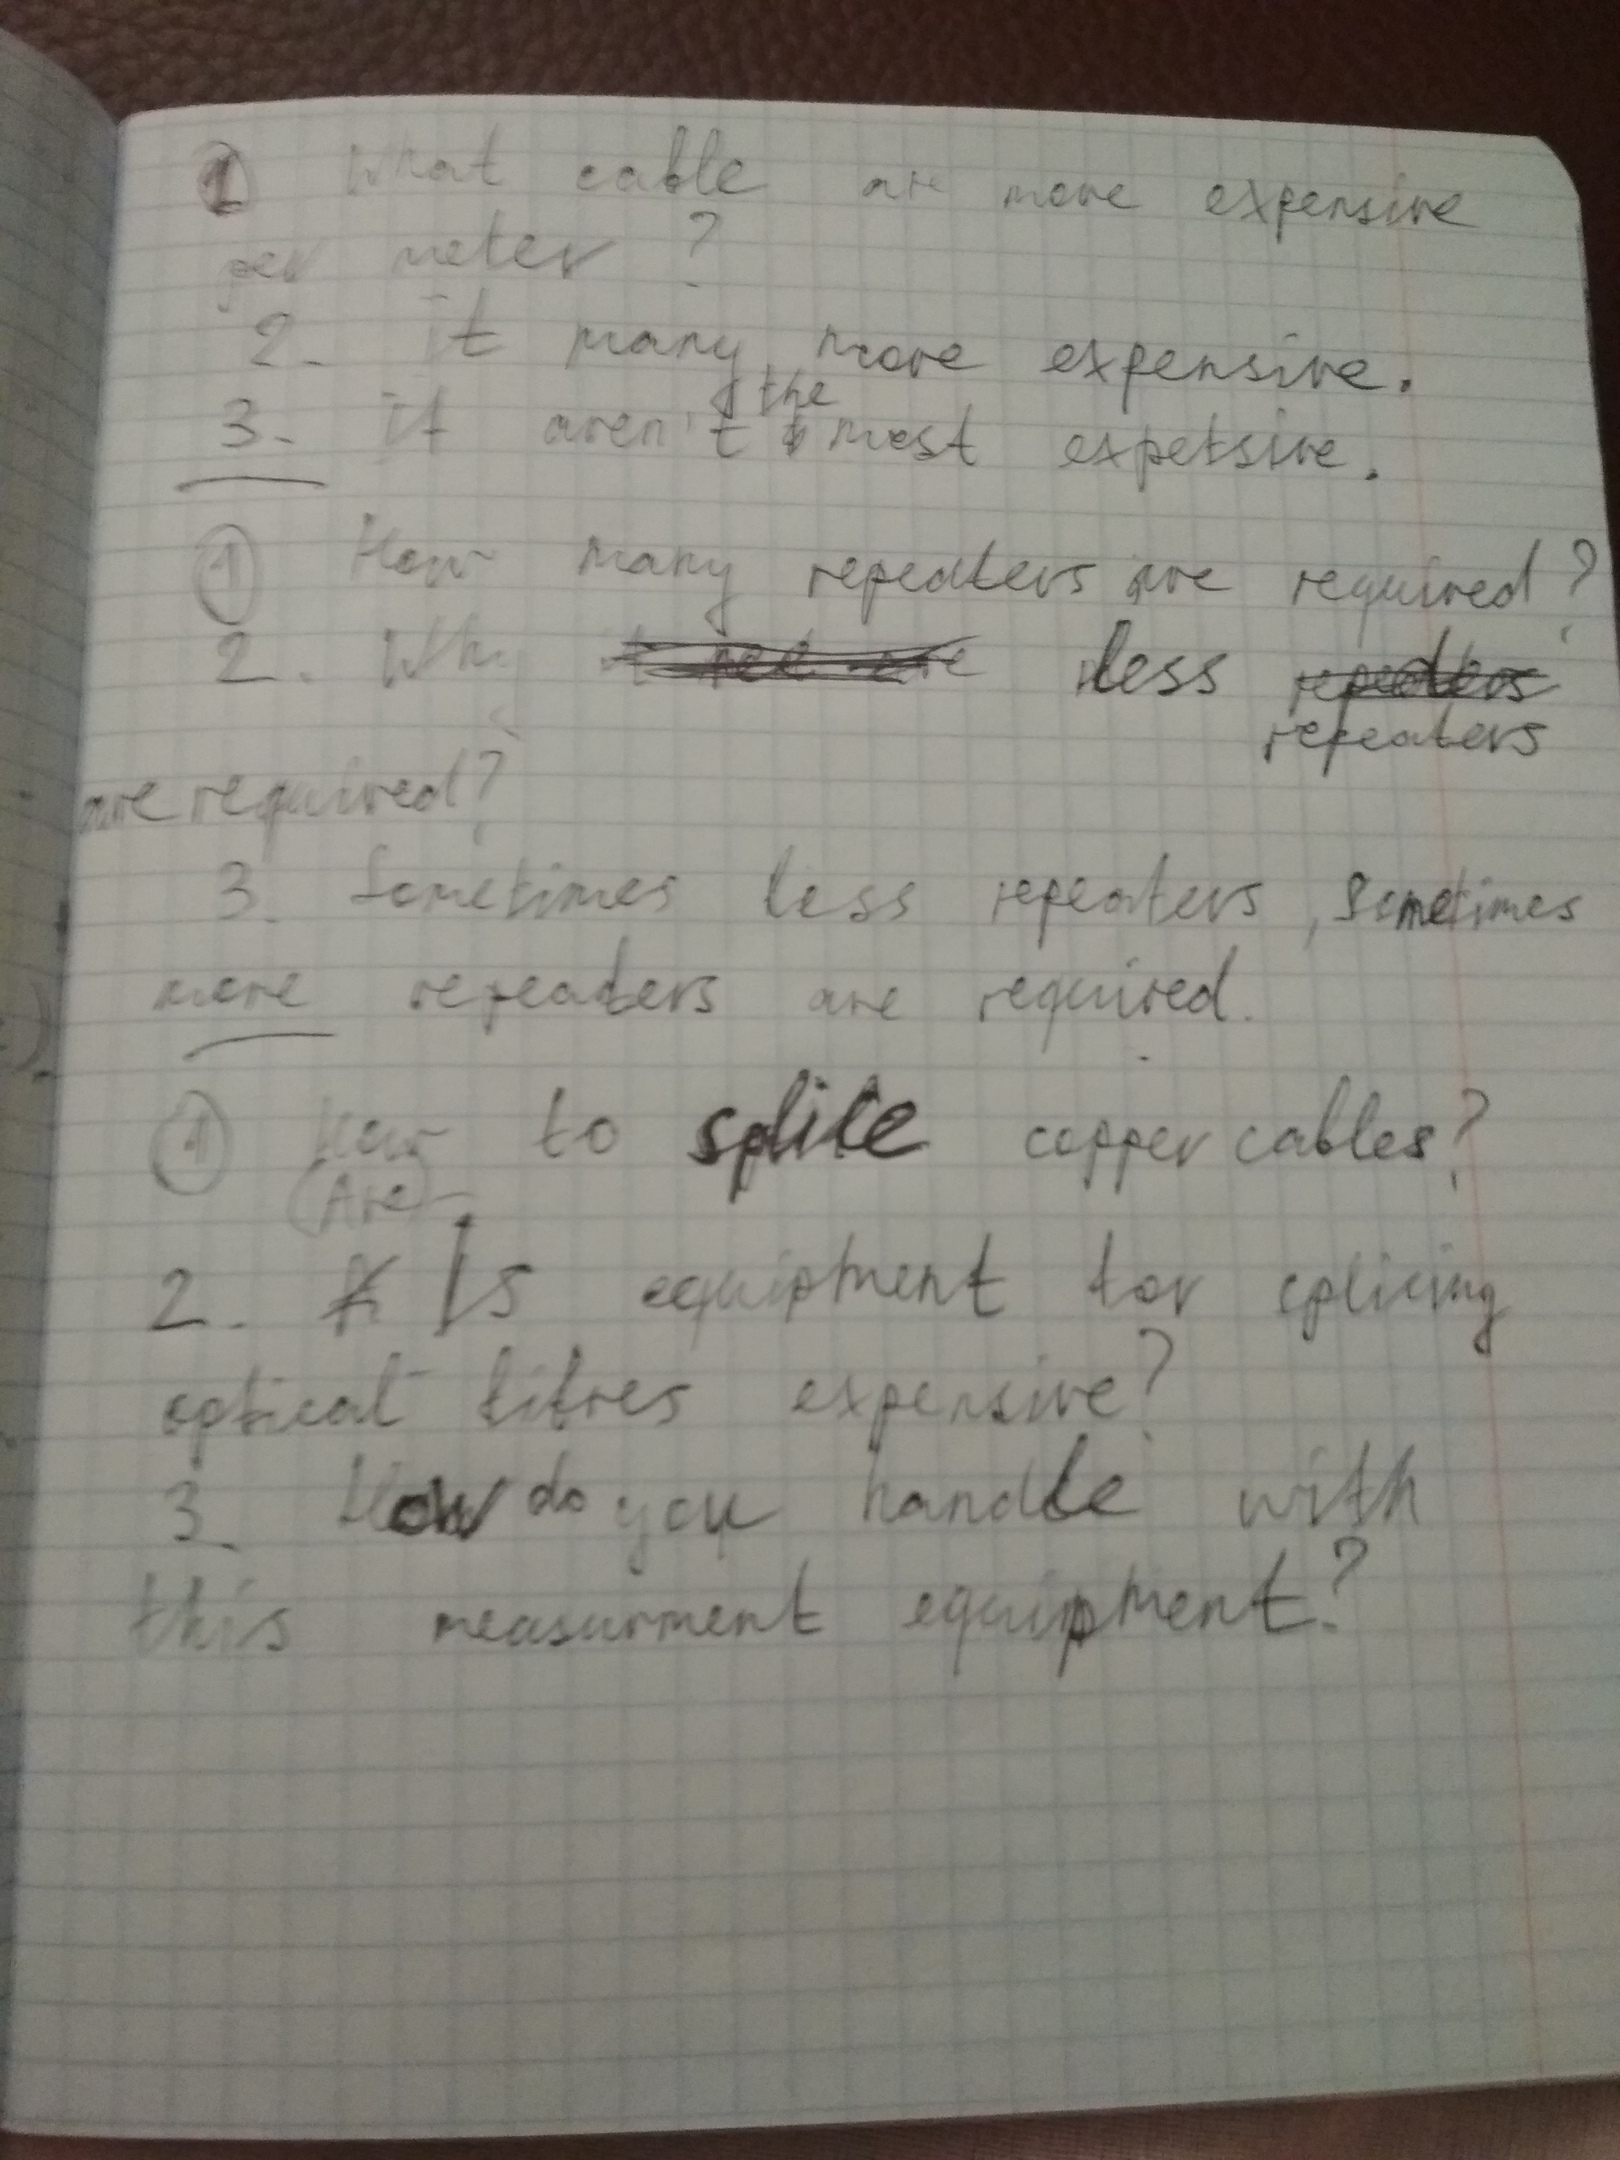 1 What cable are more expensive
per meter?
2. it many more expensive.
the
3. it aren't most expetsive.
1 How many repeaters are required?
2. Why less repeaters
repeaters
are required?
3. Sometimes less repeaters, Sometimes
more repeaters are required.
1 How to splice copper cables?
(Are)
2. Is equipment for splicing
optical fibres expensive?
3. How do you handle with
this measurment equipment?